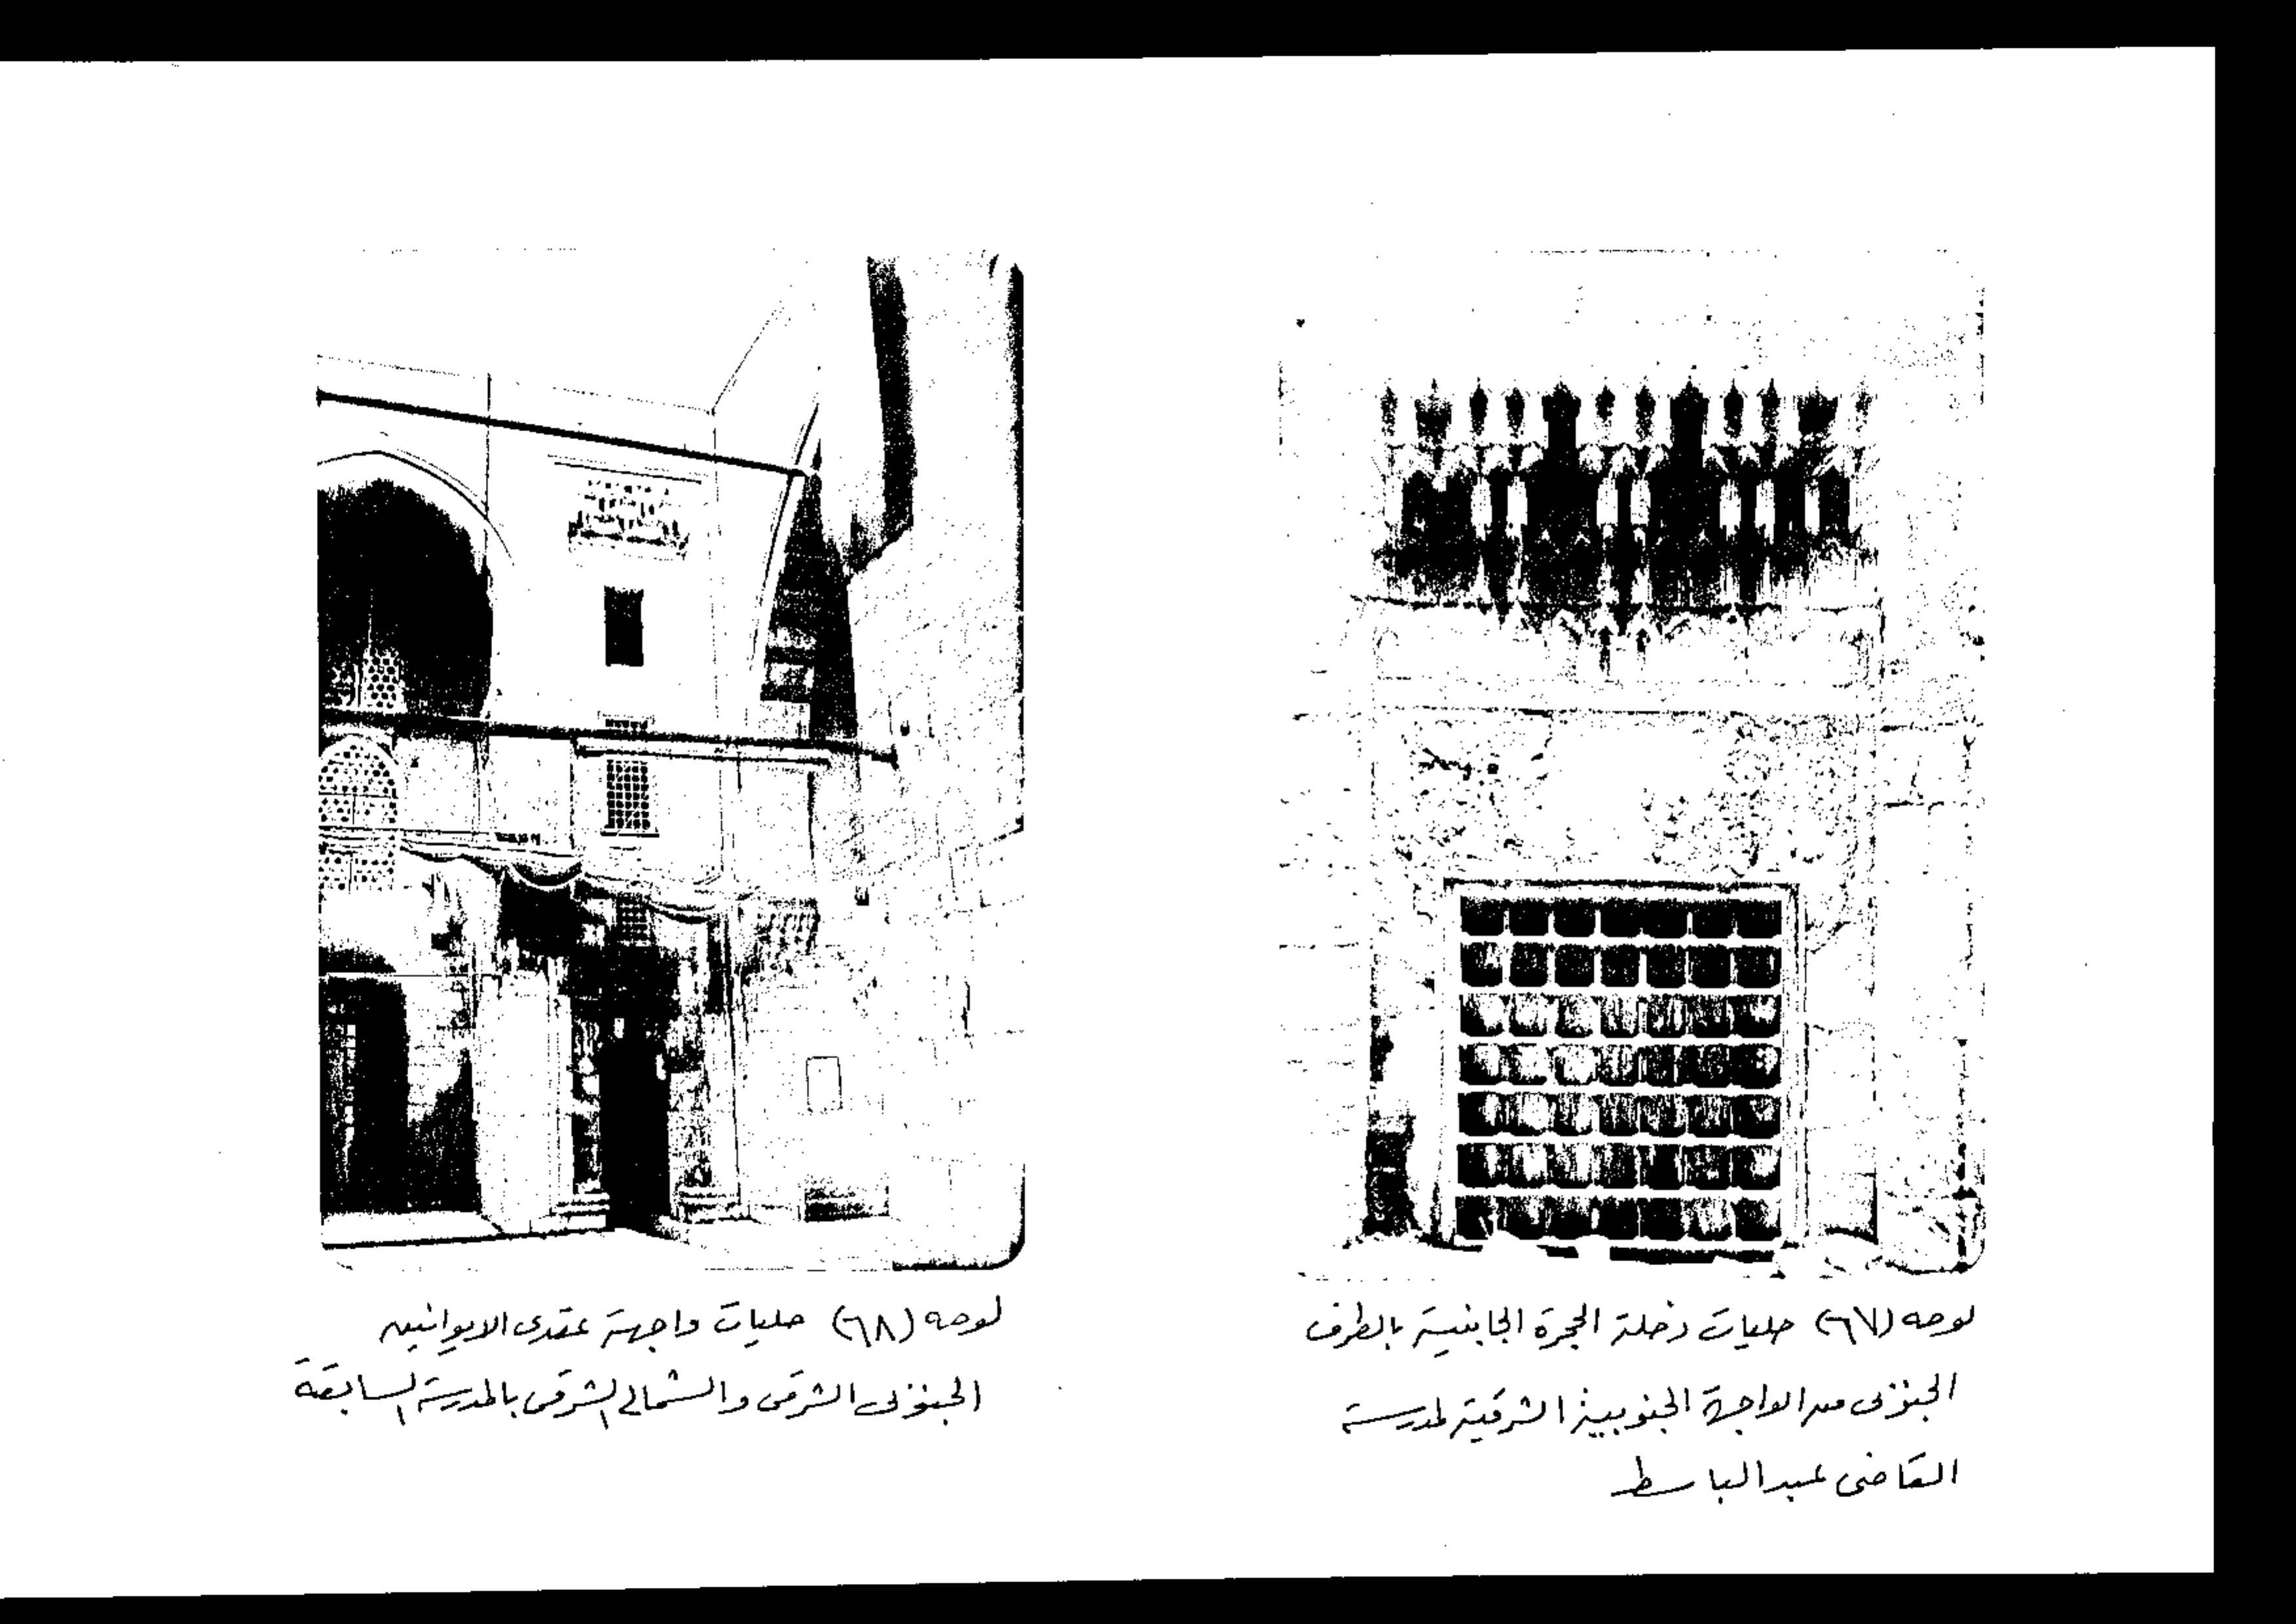 لوحه (٦٧) حليات دخلة الحجرة الجانبية بالطرف
الجنوبى من الواجهة الجنوبية الشرقية لمدرسة
القاضى عبد الباسط
لوحه (٦٨) حليات واجهة عقدى الايوانين
الجنوبى الشرقى والشمالى الشرقى بالمدرسة السابقة